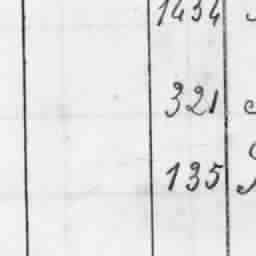 1434
321
135